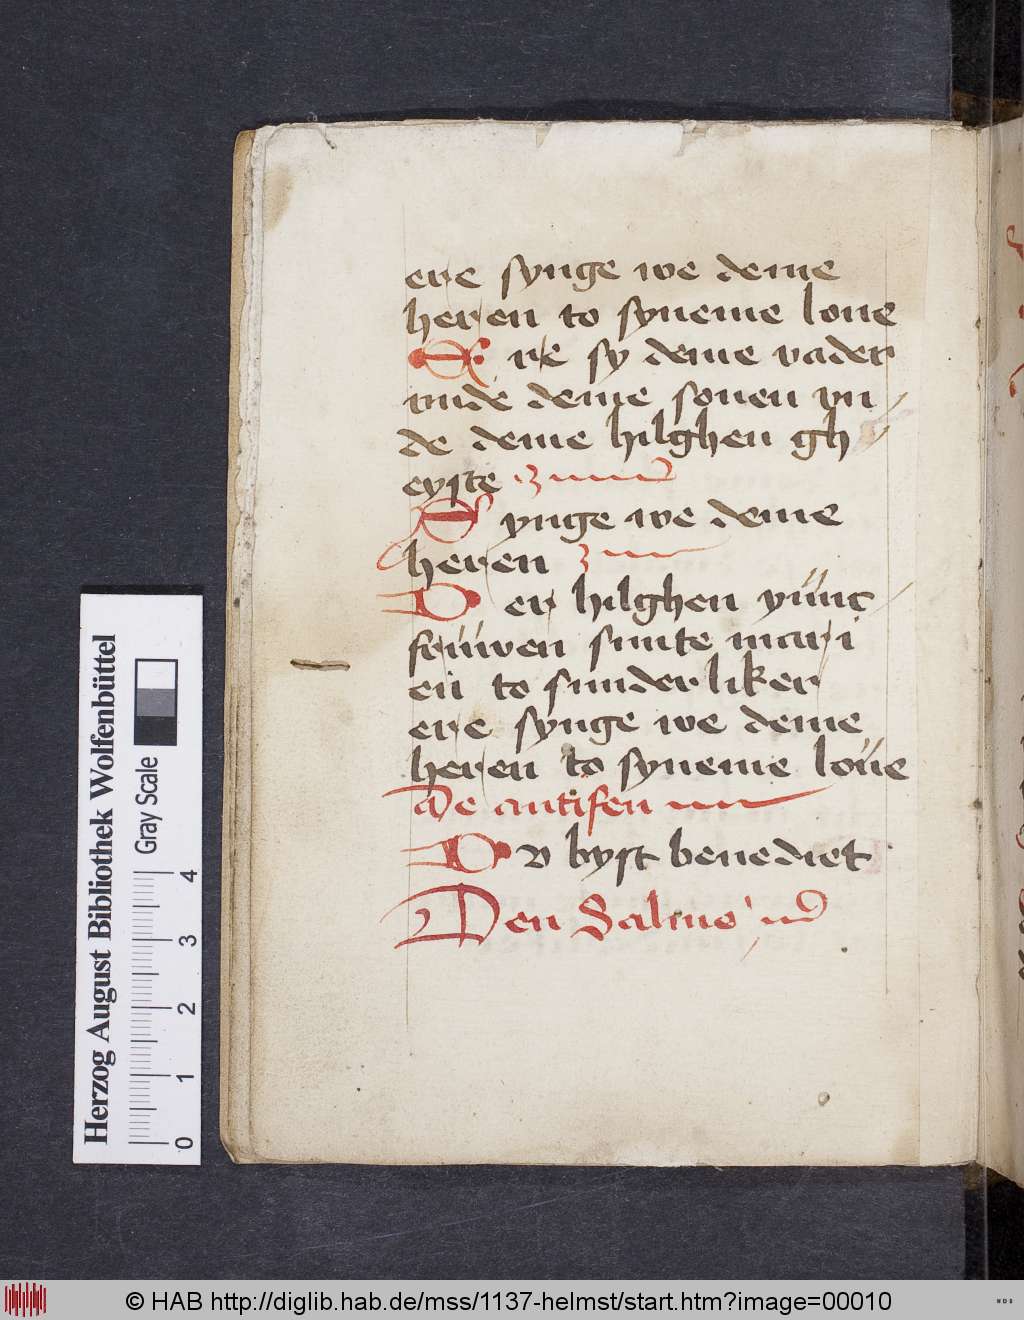 ere synge we deme
heren to syneme loue
Ere sy deme vader
vnde deme sonen vn
de deme hilghen gh
eyste
Synge we deme
heren
Der hilghen yunc
frůwen sunte mari
en to sunderliker
ere synge we deme
heren to syneme loue
de antifen
Dv byst benediet
Den Salme
Herzog August Bibliothek Wolfenbüttel
Gray Scale
0 1 2 3 4
© HAB http://diglib.hab.de/mss/1137-helmst/start.htm?image=00010